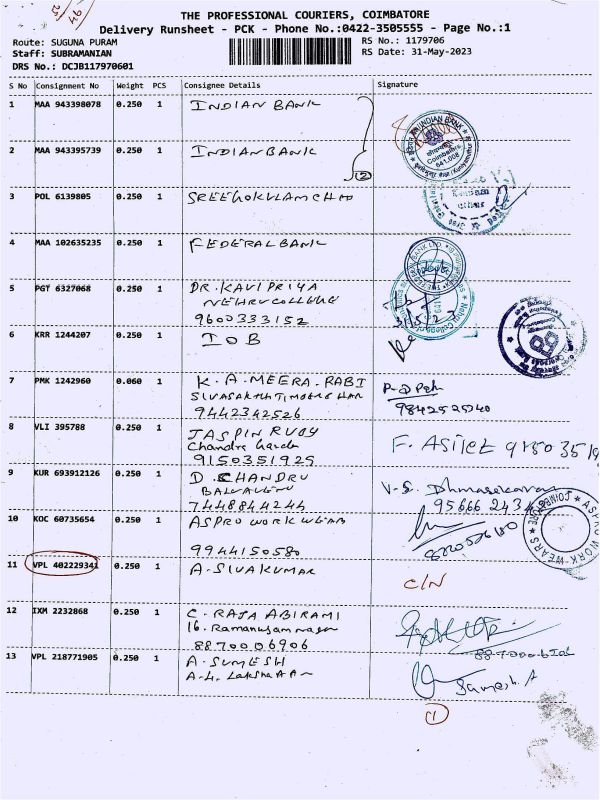 THE PROFESSIONAL COURIERS, COIMBATORE
Delivery Runsheet - PCK - Phone No.:0422-3505555 - Page No.:1
Route: SUGUNA PURAM
RS No.: 1179706
Staff: SUBRAMANIAN
RS Date: 31-May-2023
DRS No.: DCJB117970601
S No Consignment No Weight PCS Consignee Details Signature
1 MAA 943398078 0.250 1 INDIAN BANK
2 MAA 943395739 0.250 1 INDIAN BANK
2
3 POL 6139805 0.250 1 SREEGOKULAM
4 MAA 102635235 0.250 1 FEDERAL BANK
5 PGT 6327068 0.250 1 DR. KAVIPRIYA
NEHRU COLLEGE
9600333152
6 KRR 1244207 0.250 1 IOB
7 PMK 1242960 0.060 1 K. A. MEERA. RABI
9442342526
8 VLI 395788 0.250 1 JASPIN RUBY
Chandra
9150351925
9 KUR 693912126 0.250 1 D. CHANDRU
7448844244
V-S. Dhanasekaran
10 KOC 60735654 0.250 1 ASPRO WORK WEAR
9944150580
11 VPL 402229341 0.250 1 A. SIVAKUMAR C/N
12 IXM 2232868 0.250 1 C. RAJA ABIRAMI
16. Ramanujam nagar
8870006906
13 VPL 218771905 0.250 1 A. SUMESH
Sumesh. A
1